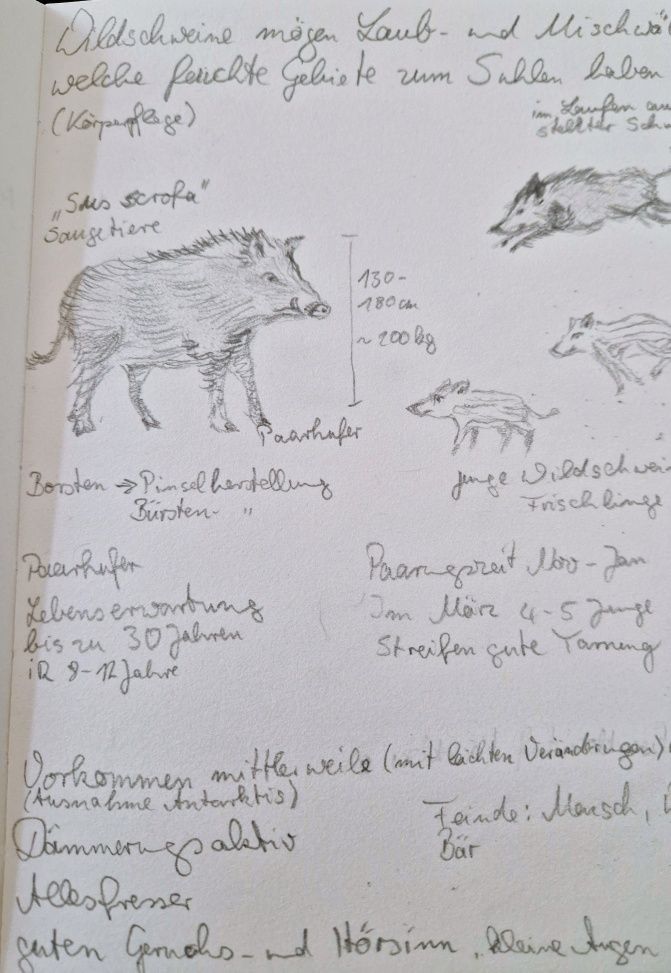 Wildschweine mögen Laub- und Mischwä
welche feuchte Gebiete zum Suhlen haben
(Körperpflege)
im Laufen
stellter Sch
"Sus scrofa"
Säugetiere
130-
180cm
~ 200kg
Paarhufer
Borsten → Pinselherstellung
Bürsten- "
junge Wildschwei
Frischlinge
Paarhufer
Lebenserwartung
bis zu 30 Jahren
iR 8-12 Jahre
Paarungszeit Nov - Jan
Im März 4-5 Junge
Streifen gute Tarnung
Vorkommen mittlerweile (mit leichten Veränderungen)
(Ausnahme Antarktis)
Feinde: Mensch,
Bär
Dämmerungsaktiv
Allesfresser
guten Geruchs- und Hörsinn, kleine Augen